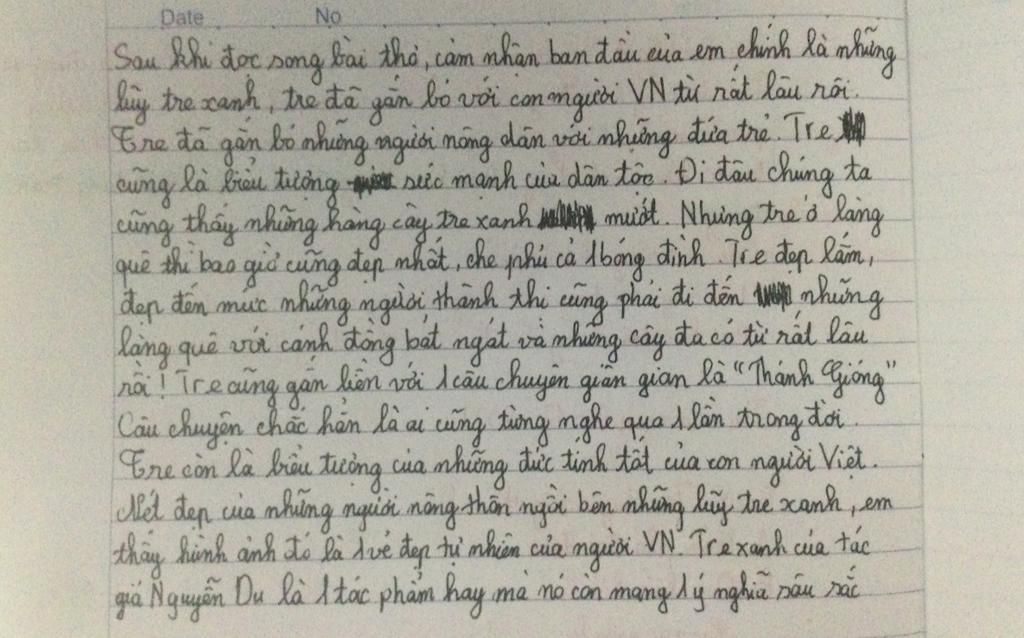 Date No
Sau khi đọc song bài thơ, cảm nhận ban đầu của em chính là những
lũy tre xanh, tre đã gắn bó với con người VN từ rất lâu rồi.
Tre đã gắn bó những người nông dân với những đứa trẻ. Tre
cũng là biểu tượng sức mạnh của dân tộc. Đi đâu chúng ta
cũng thấy những hàng cây tre xanh mướt. Nhưng tre ở làng
quê thì bao giờ cũng đẹp nhất, che phủ cả 1 bóng đình. Tre đẹp lắm,
đẹp đến mức những người thành thi cũng phải đi đến những
làng quê với cánh đồng bát ngát và những cây đa có từ rất lâu
rồi! Tre cũng gắn liền với 1 câu chuyện giân gian là "Thánh Gióng"
Câu chuyện chắc hẳn là ai cũng từng nghe qua 1 lần trong đời.
Tre còn là biểu tượng của những đức tính tốt của con người Việt.
Nét đẹp của những người nông thôn ngồi bên những lũy tre xanh, em
thấy hình ảnh đó là 1 vẻ đẹp tự nhiên của người VN. Tre xanh của tác
giả Nguyễn Du là 1 tác phẩm hay mà nó còn mang 1 ý nghĩa sâu sắc